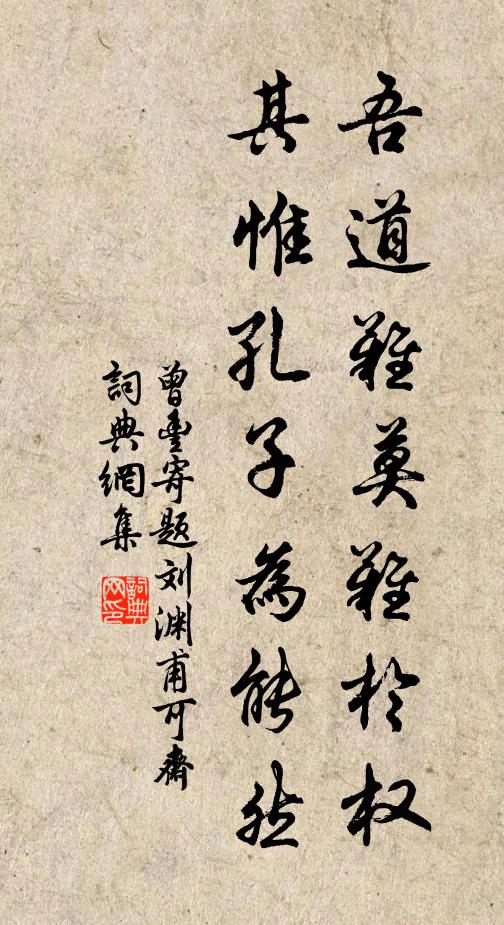 吾道难莫难於权
其惟孔子為能然
曾豊寄题刘渊甫可斋
詞典網集
詞典网印